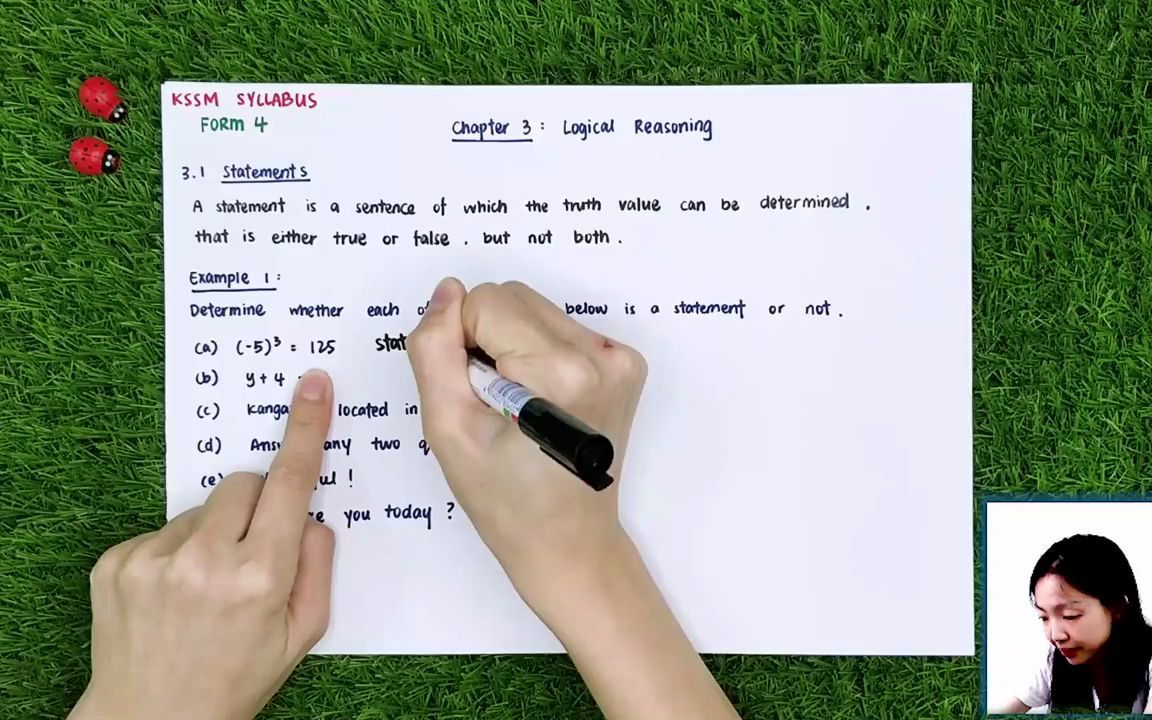 KSSM SYLLABUS
FORM 4
Chapter 3 : Logical Reasoning
3.1 Statements
A statement is a sentence of which the truth value can be determined ,
that is either true or false , but not both .
Example 1 :
Determine whether each below is a statement or not .
(a) (-5)³ = 125
(b) y + 4
(c) located in
(d) any two
(e) !
you today ?